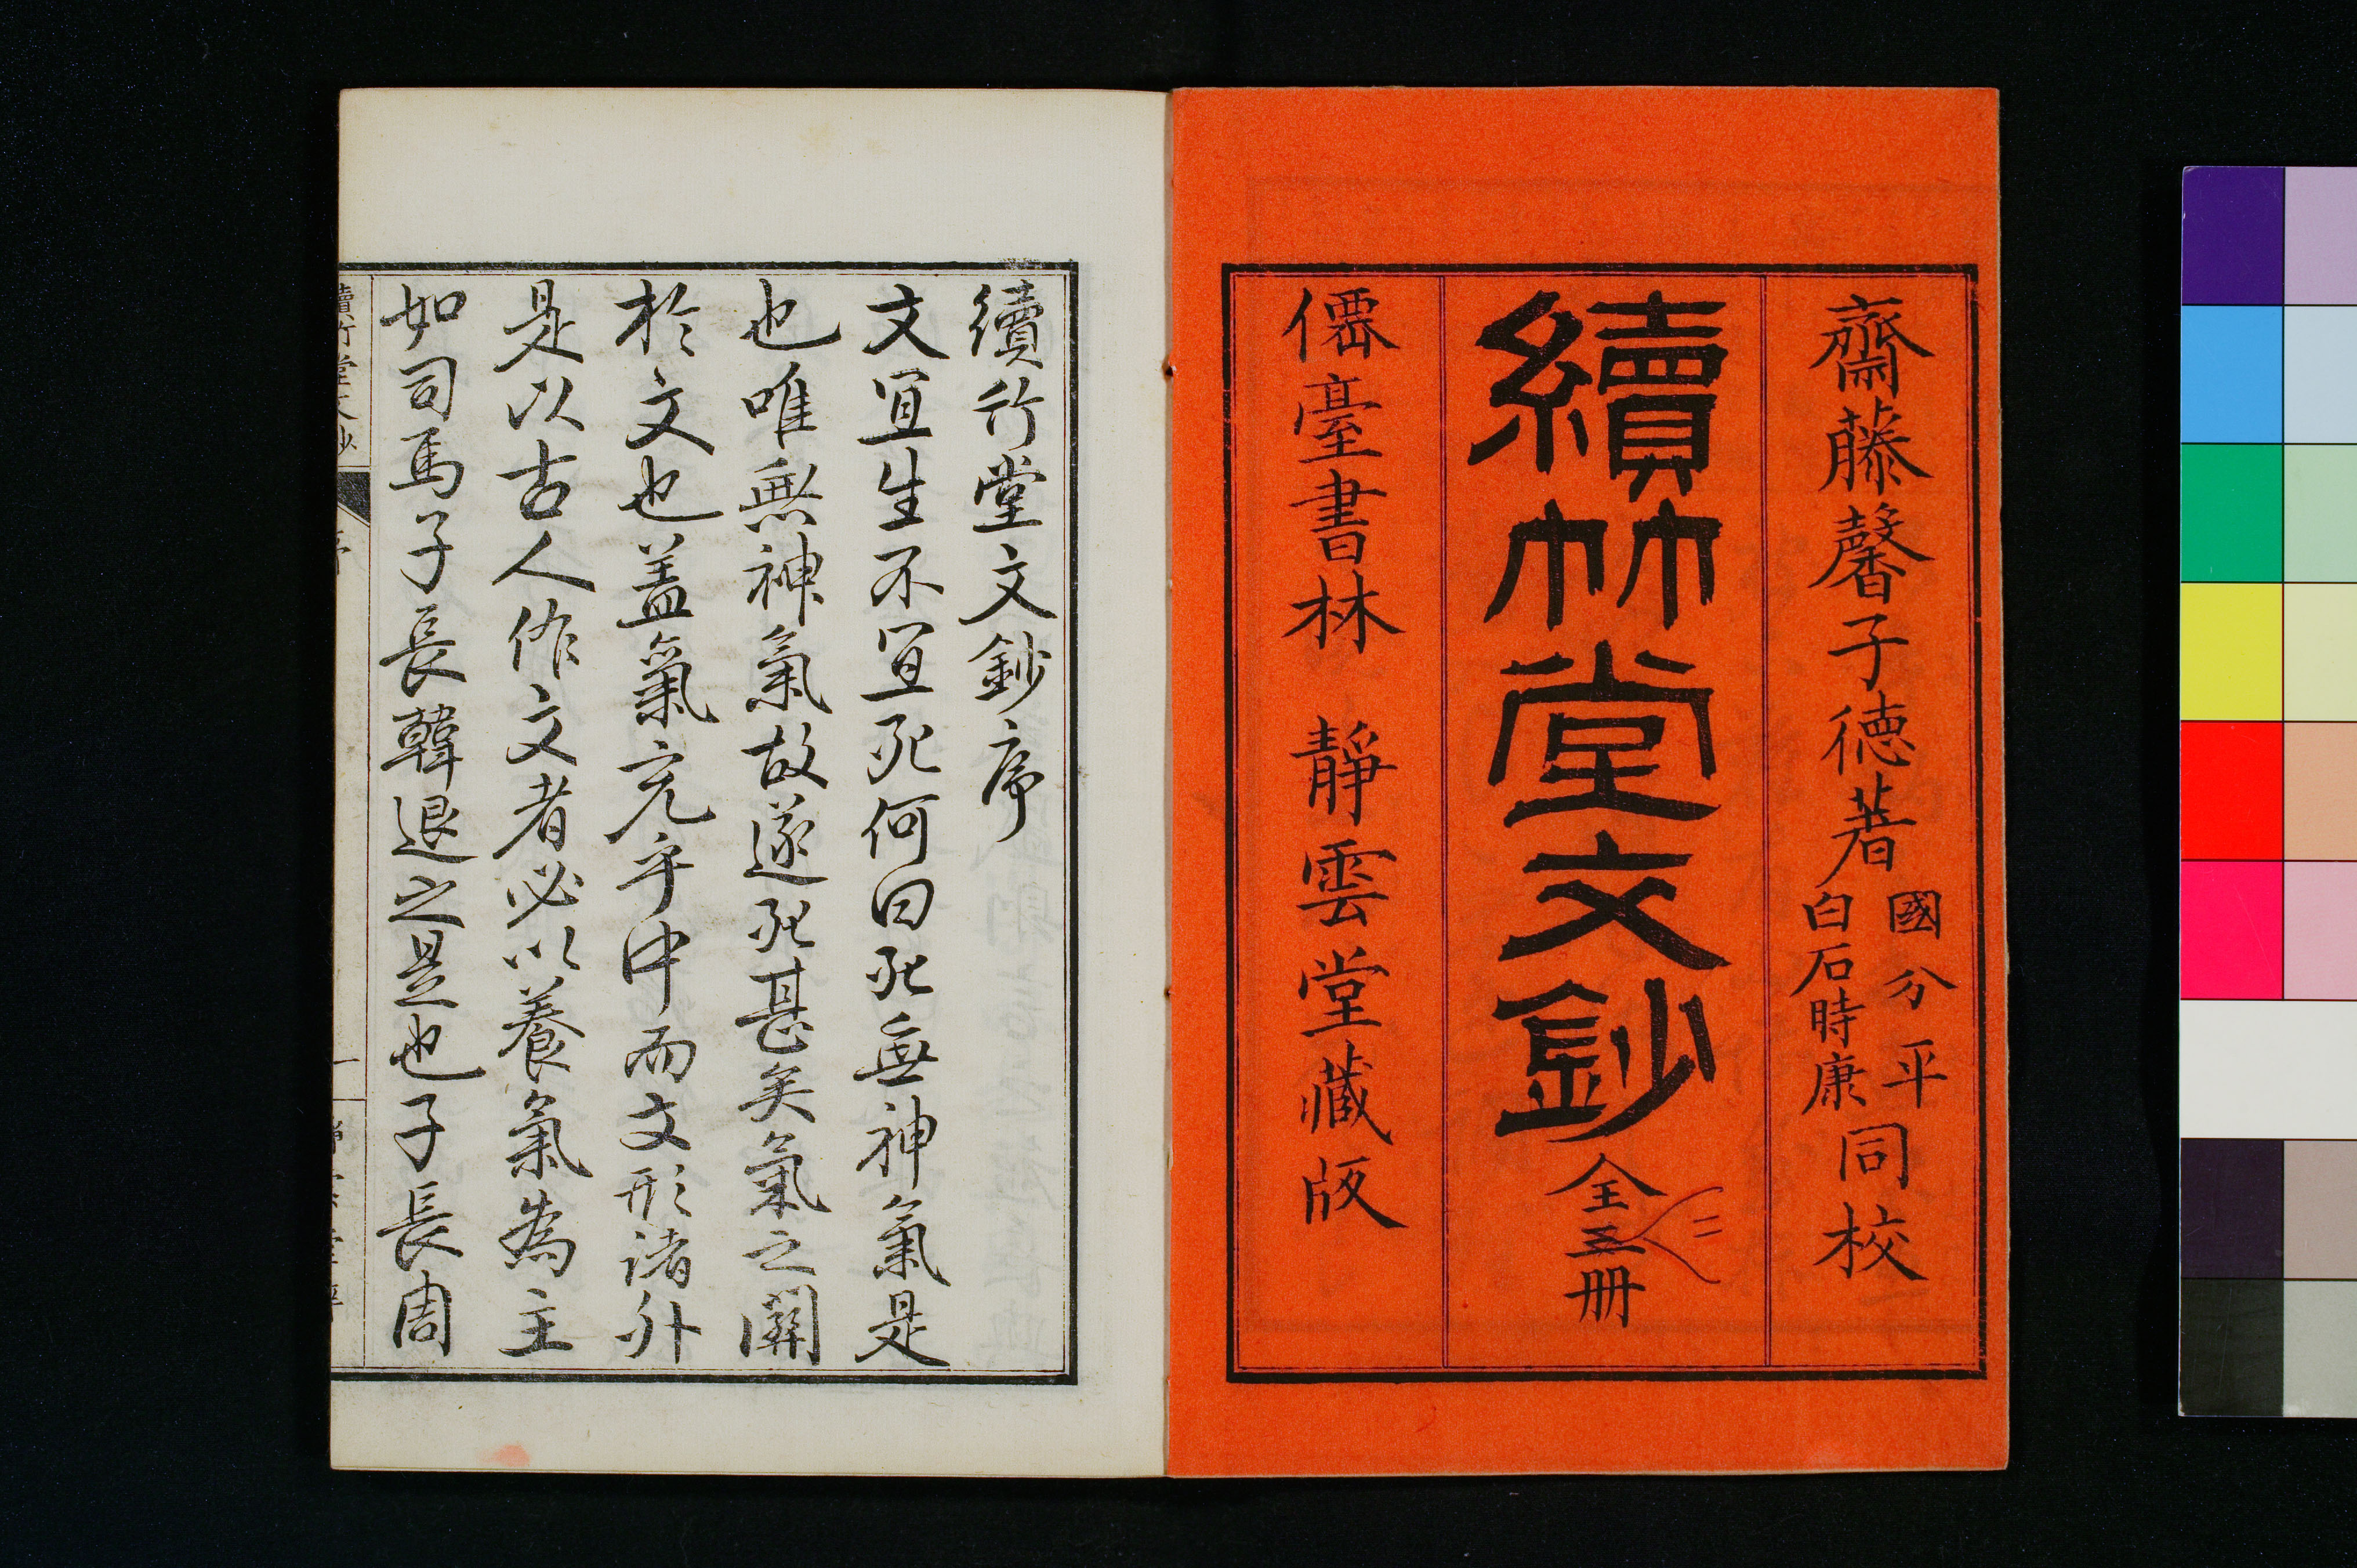 齋藤馨子德著
國分平
白石時康
同校
續竹堂文鈔
全三冊
二
僊臺書林 靜雲堂藏版
續竹堂文鈔序
文宜生不宜死何曰死無神氣是
也唯無神氣故遂死甚矣氣之關
於文也蓋氣充乎中而文形諸外
是以古人作文者必以養氣為主
如司馬子長韓退之是也子長周
續竹堂文鈔
序
一